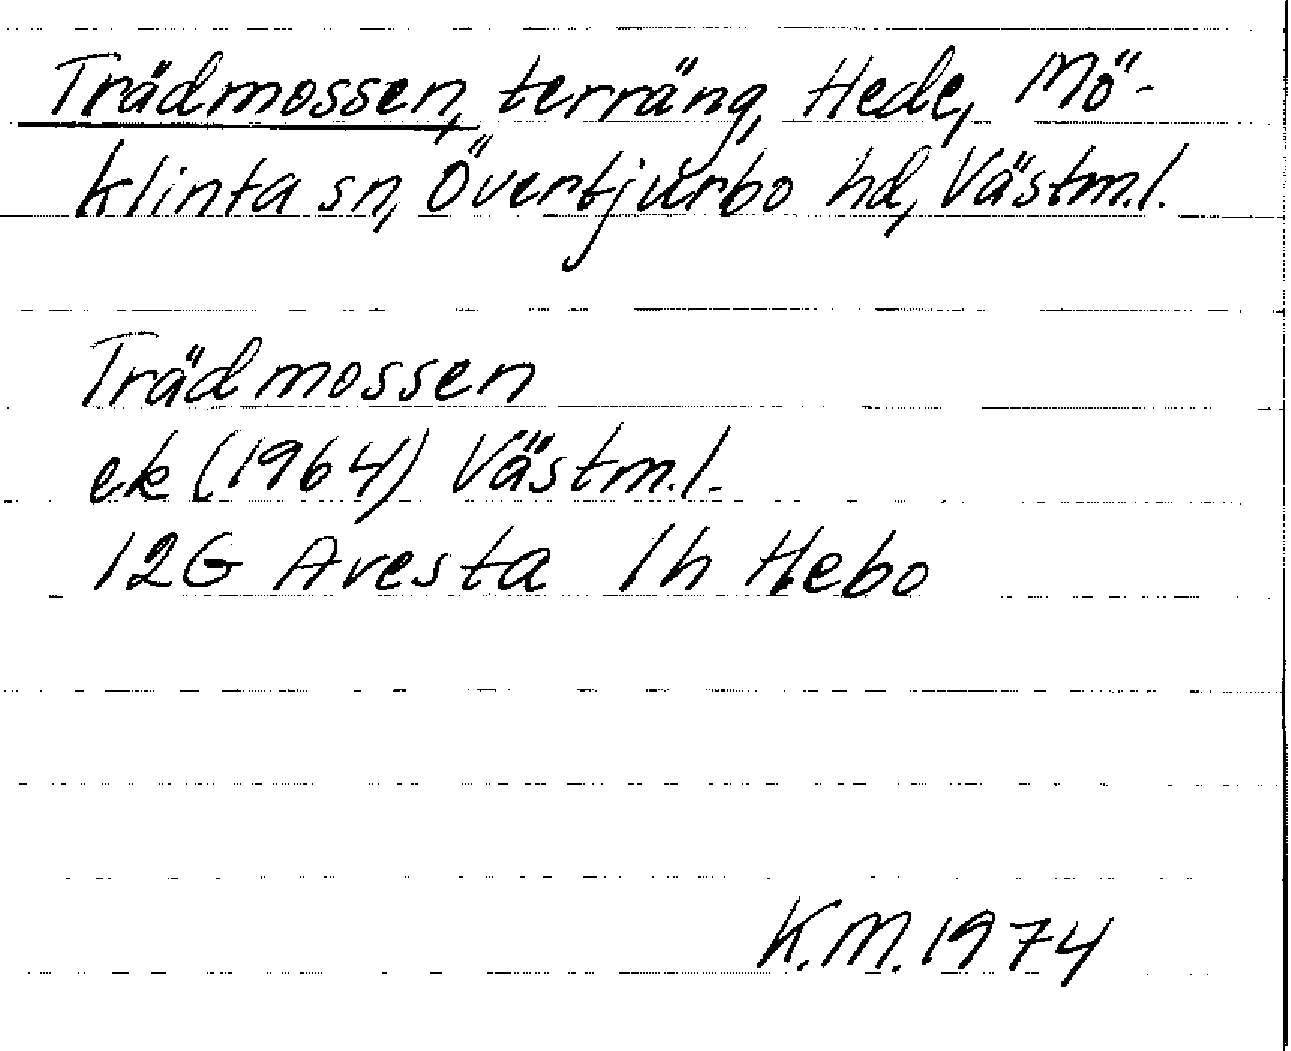 Trädmossen, terräng, Hede, Mö-
klinta sn, Övertjurbo hd, Västm.l.
Trädmossen
ek (1964) Västm.l.
12G Avesta 1h Hebo
K.M. 1974